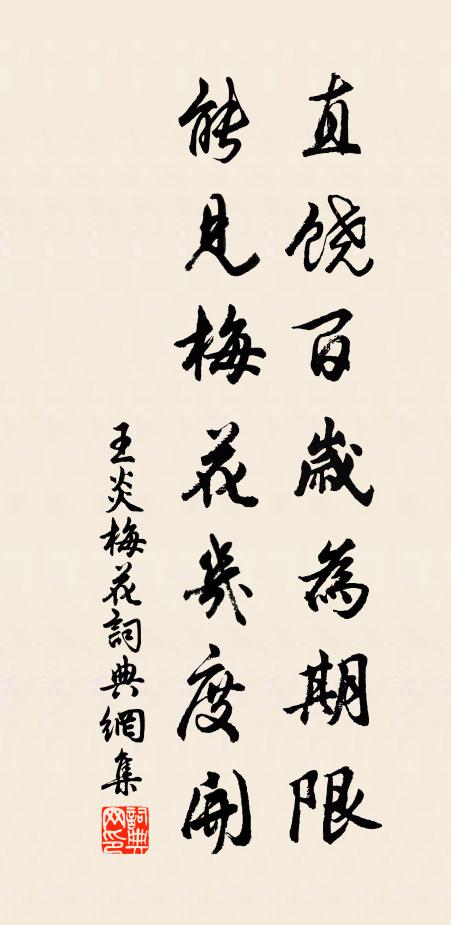 直饶百歲為期限
能見梅花幾度開
王炎梅花詞典網集
詞典网印